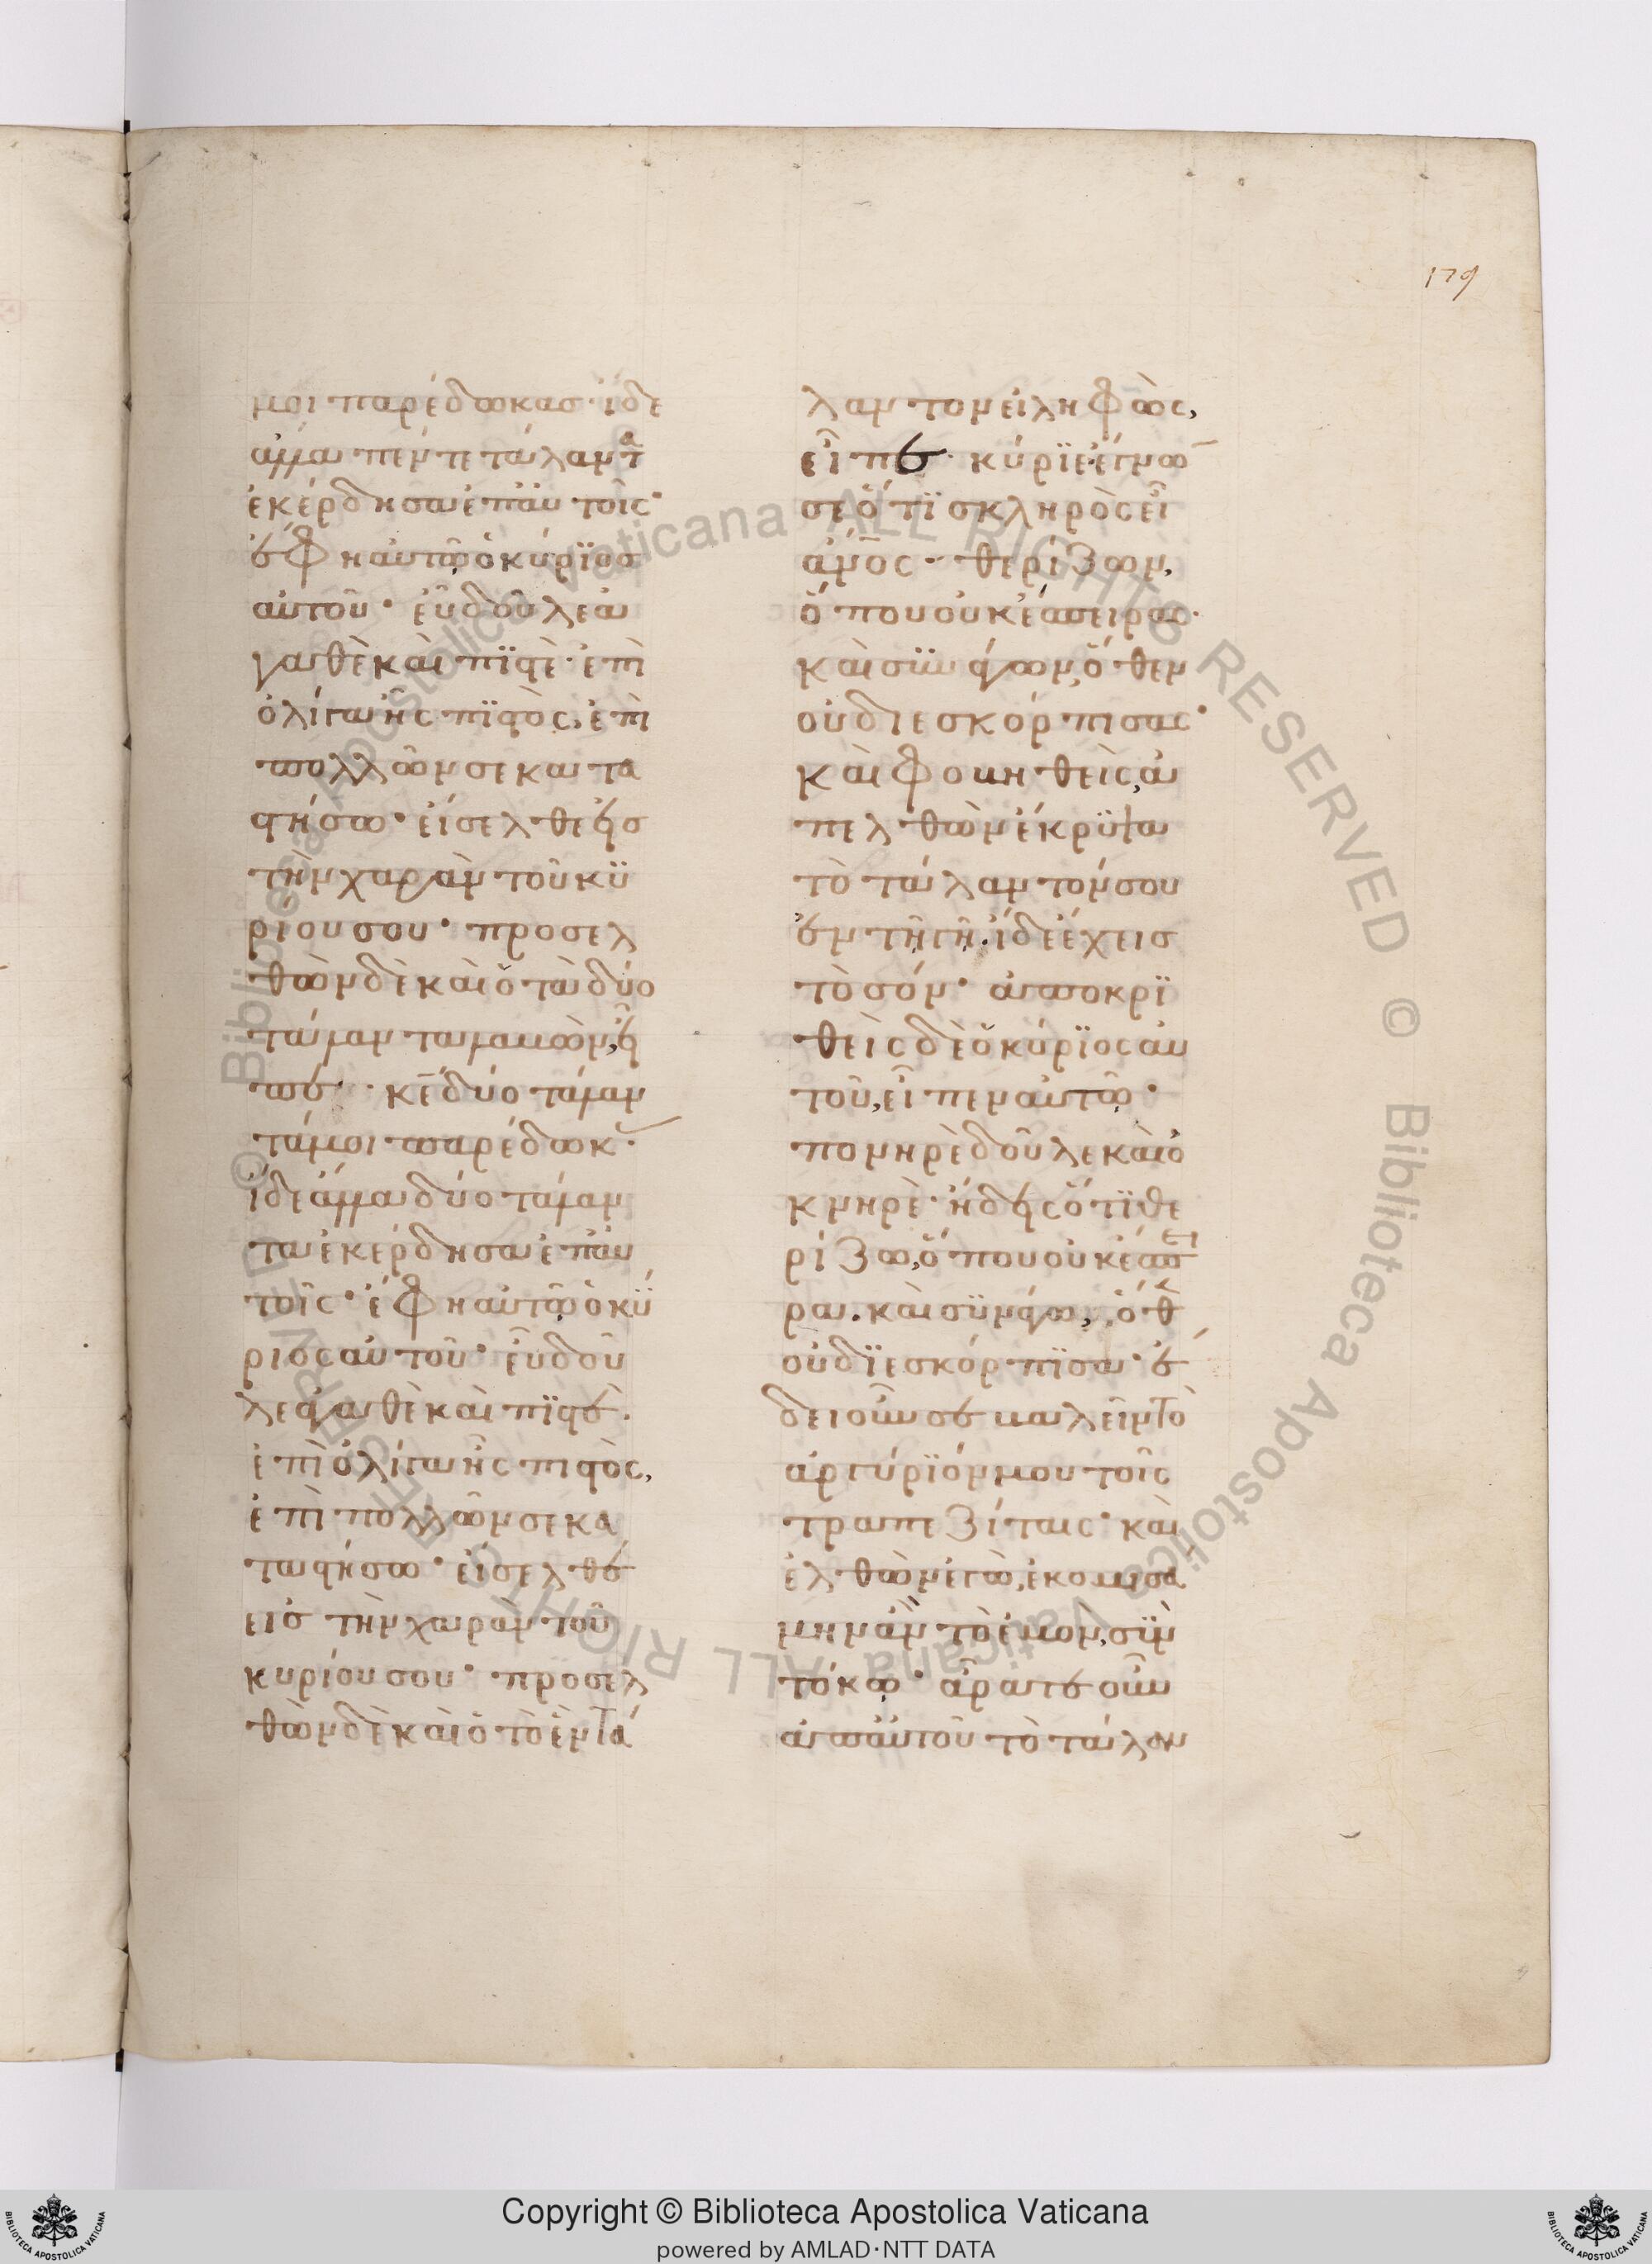 179
μοι παρέδωκασ· ἴδε
ἄλλα πέντε τάλαντα
ἐκέρδησα ἐπ' αὐτοῖς·
ἔφη αὐτῷ ὁ κύρϊοσ
αὐτοῦ· εὖ δοῦλε ἀ
γαθὲ καὶ πϊστὲ· ἐπὶ
ὀλίγα ἦς πϊστὸς, ἐπὶ
πολλῶν σε κατα
στήσω· εἴσελθε εἰσ
τὴν χαρὰν τοῦ κϋ
ρίου σου· προσελ
θὼν δὲ καὶ ὁ τὰ δύο
τάλαντα λαβὼν, εἶ
πε· κε̄ δύο τάλαν
τά μοι παρέδωκ·
ἴδε ἄλλα δύο τάλαν
τα ἐκέρδησα ἐπ' αὐ
τοῖς· ἔφη αὐτῷ ὁ κύ
ριος αὐτοῦ· εὖ δοῦ
λε ἀγαθὲ καὶ πϊστὲ·
ἐπὶ ὀλίγα ἦς πιστὸς,
ἐπὶ πολλῶν σε κα
ταστήσω· εἴσελθε
εἰσ τὴν χαρὰν τοῦ
κυρίου σου· προσελ
θὼν δὲ καὶ ὁ τὸ ἓν τά
λαντον εἰληφὼς,
εἶπε· κύρϊε ἔγνω
σε ὅτϊ σκληρὸς εἶ
ἄν̄ος· θερίζων,
ὅπου οὐκ ἔσπειρας·
καὶ συνάγων, ὅθεν
οὐ διεσκόρπισας·
καὶ φοβηθεὶς, ἀ
πελθὼν ἔκρϋψα
τὸ τάλαντόν σου
ἐν τῇ γῇ. ἴδε ἔχεισ
τὸ σόν· ἀποκρϊ
θεὶς δὲ ὁ κύρϊος αὐ
τοῦ, εἶπεν αὐτῷ·
πονηρὲ δοῦλε καὶ ὀ
κνηρὲ· ἤδεις ὅτϊ θε
ρίζω, ὅπου οὐκ ἔσπει
ρα. καὶ σϋνάγω, ὅθε
οὐ δϊεσκόρπϊσα· ἔ
δει οὖν σε βαλεῖν τὸ
ἀργύρϊόν μου τοῖς
τραπεζίταις· καὶ
ἐλθὼν ἐγὼ, ἐκομισά
μην ἂν τὸ ἐμὸν, σϋν
τόκῳ· ἄρατε οὖν
ἀπ' αὐτοῦ τὸ τάλαν
© Biblioteca Apostolica Vaticana ALL RIGHTS RESERVED © Biblioteca Apostolica Vaticana ALL RIGHTS RESERVED
Copyright © Biblioteca Apostolica Vaticana
powered by AMLAD·NTT DATA
BIBLIOTECA APOSTOLICA VATICANA
BIBLIOTECA APOSTOLICA VATICANA